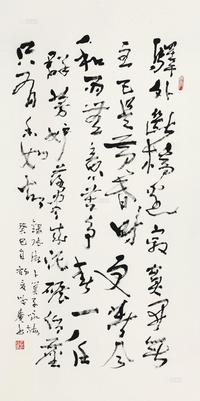 驛外斷橋邊寂寞開無
主已是黃昏時更著風
和雨無意苦爭春一任
群芳妒零落成泥碾作塵
只有香如故
錄陸游卜算子詠梅
癸巳